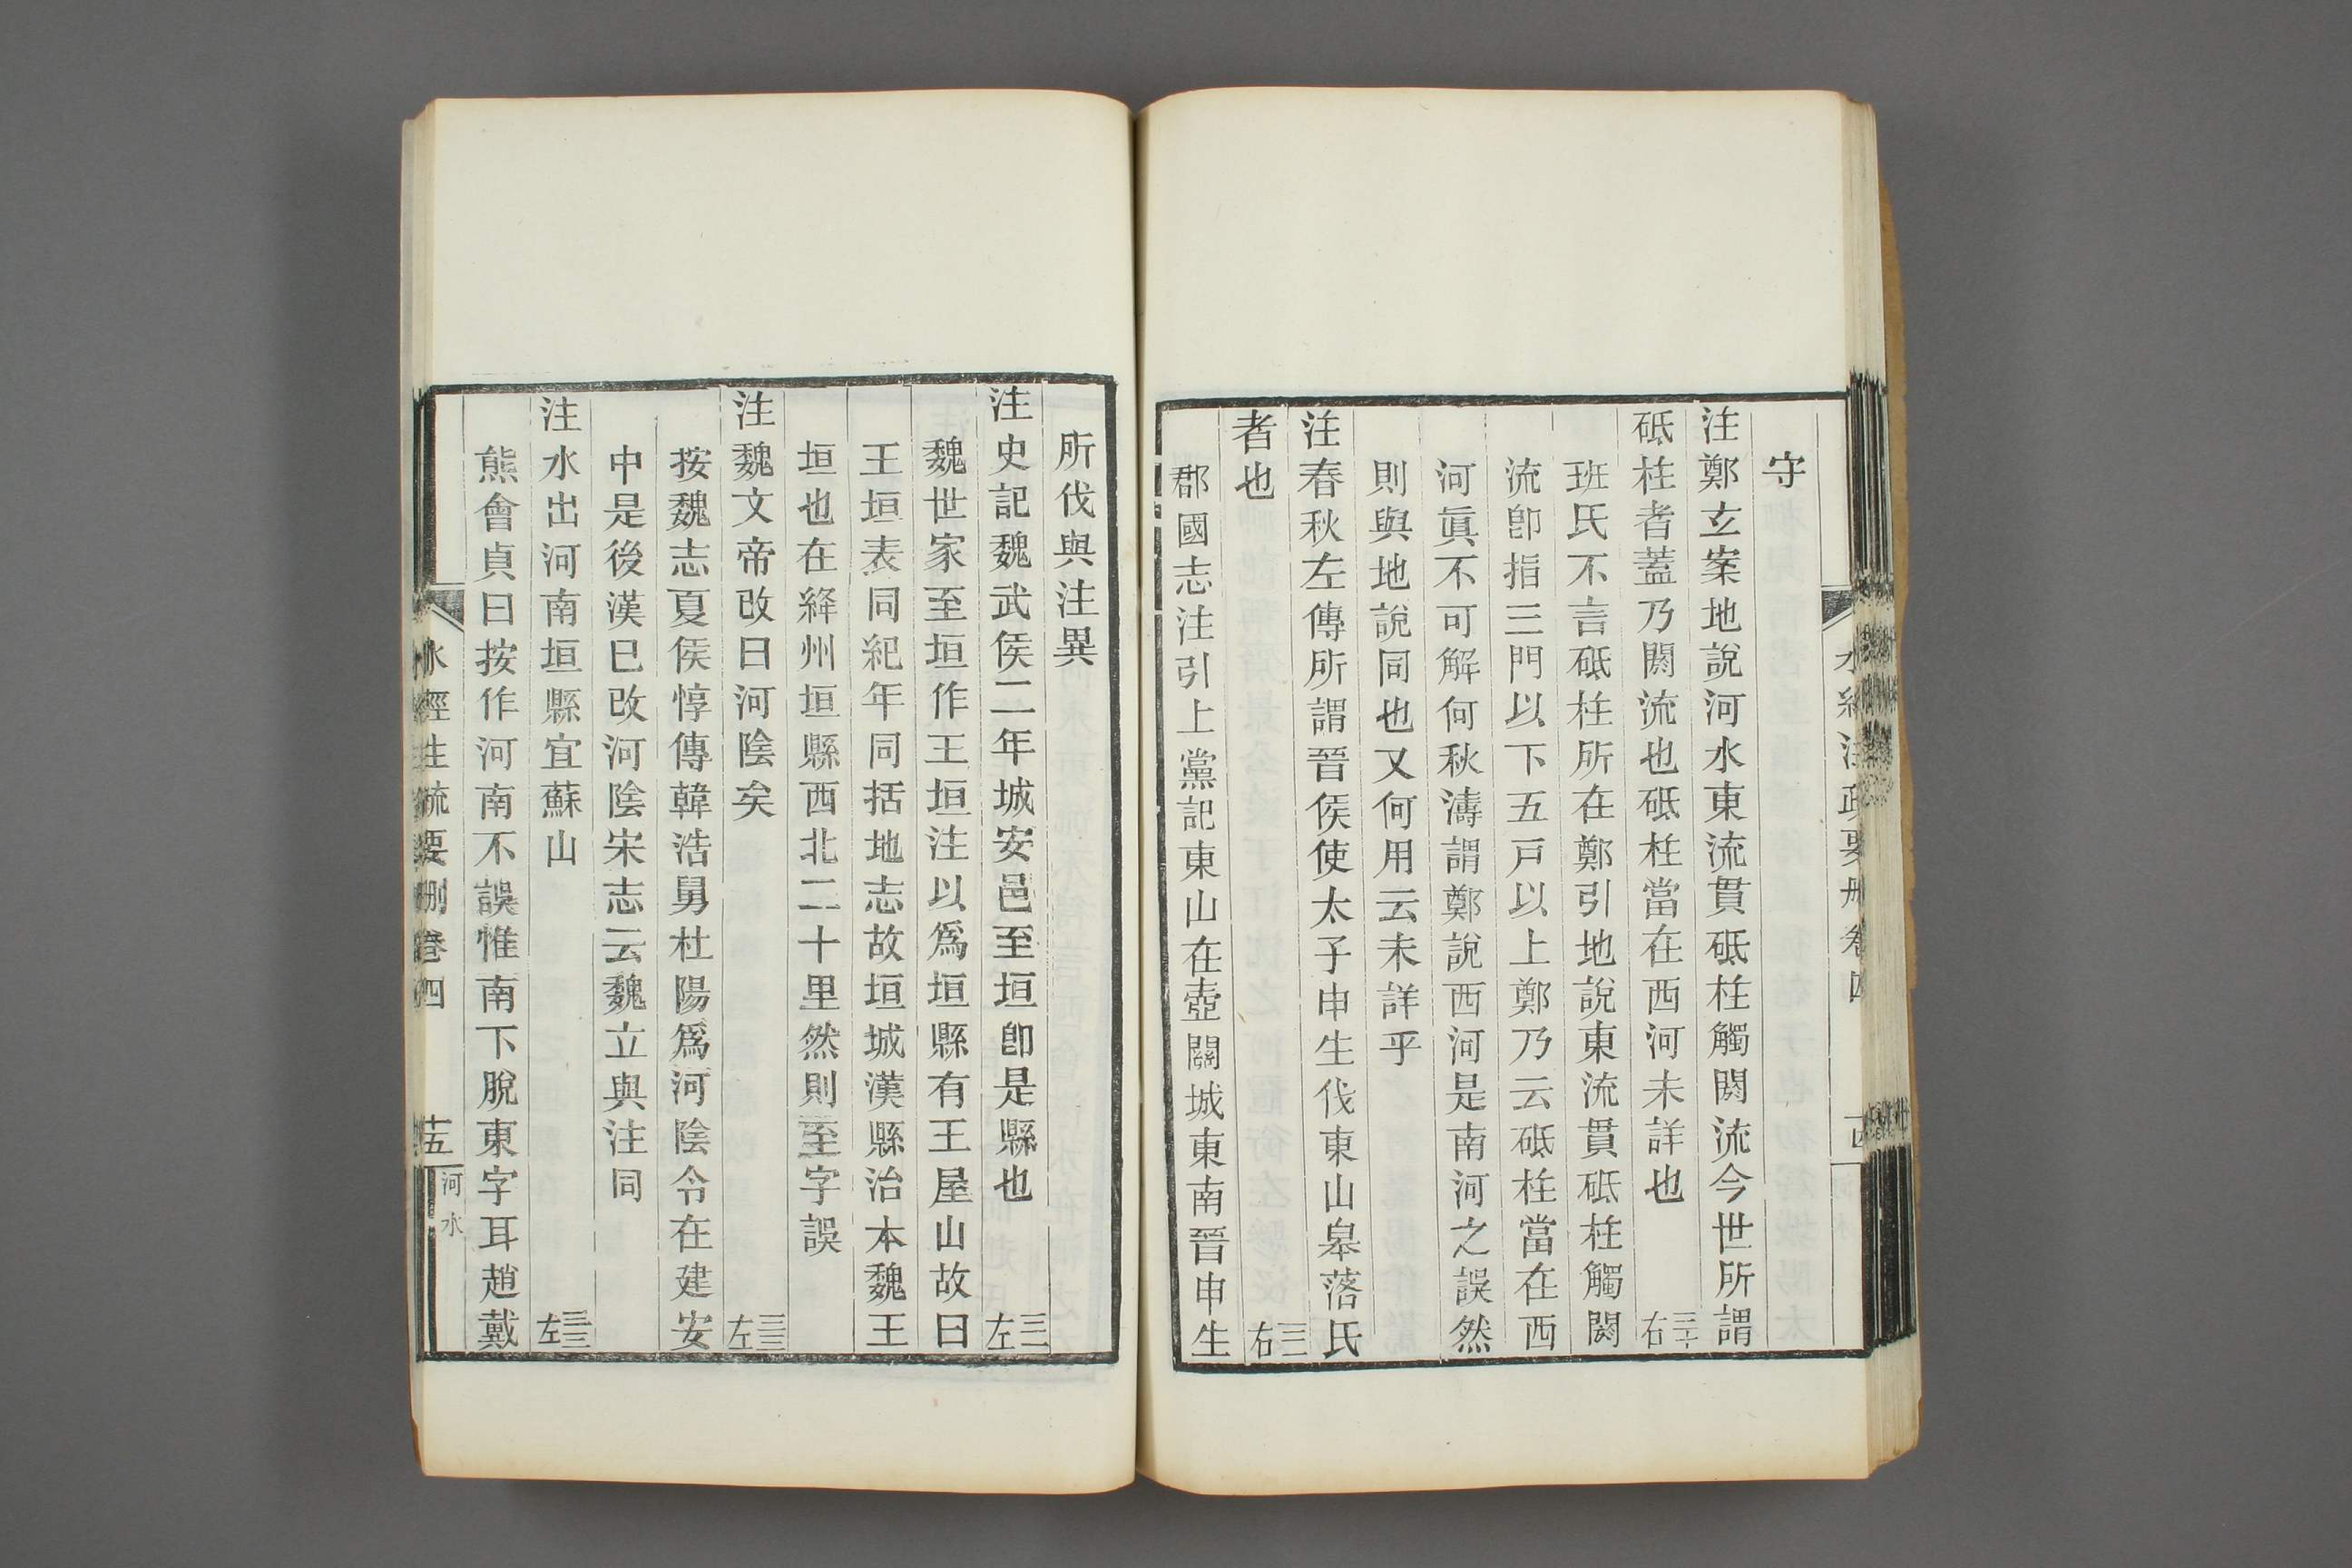 水經注疏要刪卷四
守
注鄭玄案地說河水東流貫砥柱觸閼流今世所謂
砥柱者蓋乃閼流也砥柱當在西河未詳也 三十右
班氏不言砥柱所在鄭引地說東流貫砥柱觸閼
流卽指三門以下五戸以上鄭乃云砥柱當在西
河眞不可解何秋濤謂鄭說西河是南河之誤然
則與地說同也又何用云未詳乎
注春秋左傳所謂晉侯使太子申生伐東山皋落氏
者也 三二右
郡國志注引上黨記東山在壺關城東南晉申生
所伐與注異
注史記魏武侯二年城安邑至垣卽是縣也 三二左
魏世家至垣作王垣注以爲垣縣有王屋山故曰
王垣表同紀年同括地志故垣城漢縣治本魏王
垣也在絳州垣縣西北二十里然則至字誤
注魏文帝改曰河陰矣 三三左
按魏志夏侯惇傳韓浩舅杜陽爲河陰令在建安
中是後漢已改河陰宋志云魏立與注同
注水出河南垣縣宜蘇山 三三左
熊會貞曰按作河南不誤惟南下脫東字耳趙戴
水經注疏要刪卷四 十五 河水